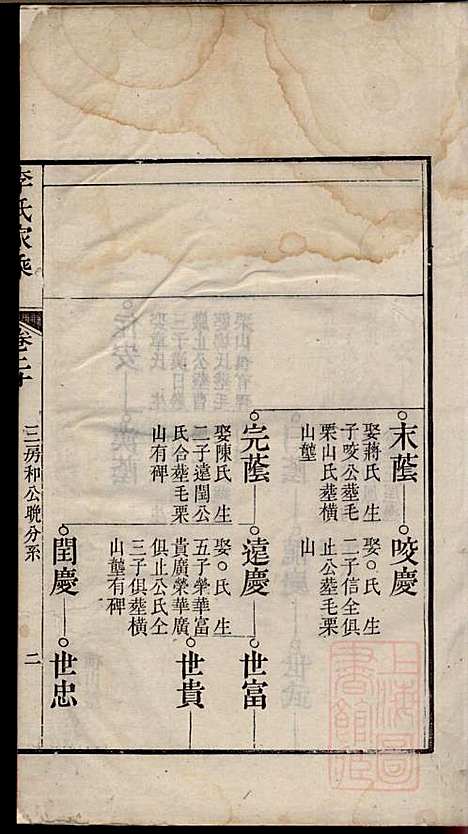 末蔭
娶蔣氏生
子咬公塟毛
栗山氏塟橫
山壟
咬慶
娶○氏生
二子信全俱
止公塟毛栗
山
完蔭
娶陳氏生
二子遠閏公
氏合塟毛栗
山有碑
遠慶
娶○氏生
五子榮華富
貴廣榮華廣
俱止公氏仝
三子俱塟橫
山壟有碑
世富
世貴
閏慶
世忠
李氏家乘
卷二十
三房和公晩分系
二
上海圖書館藏